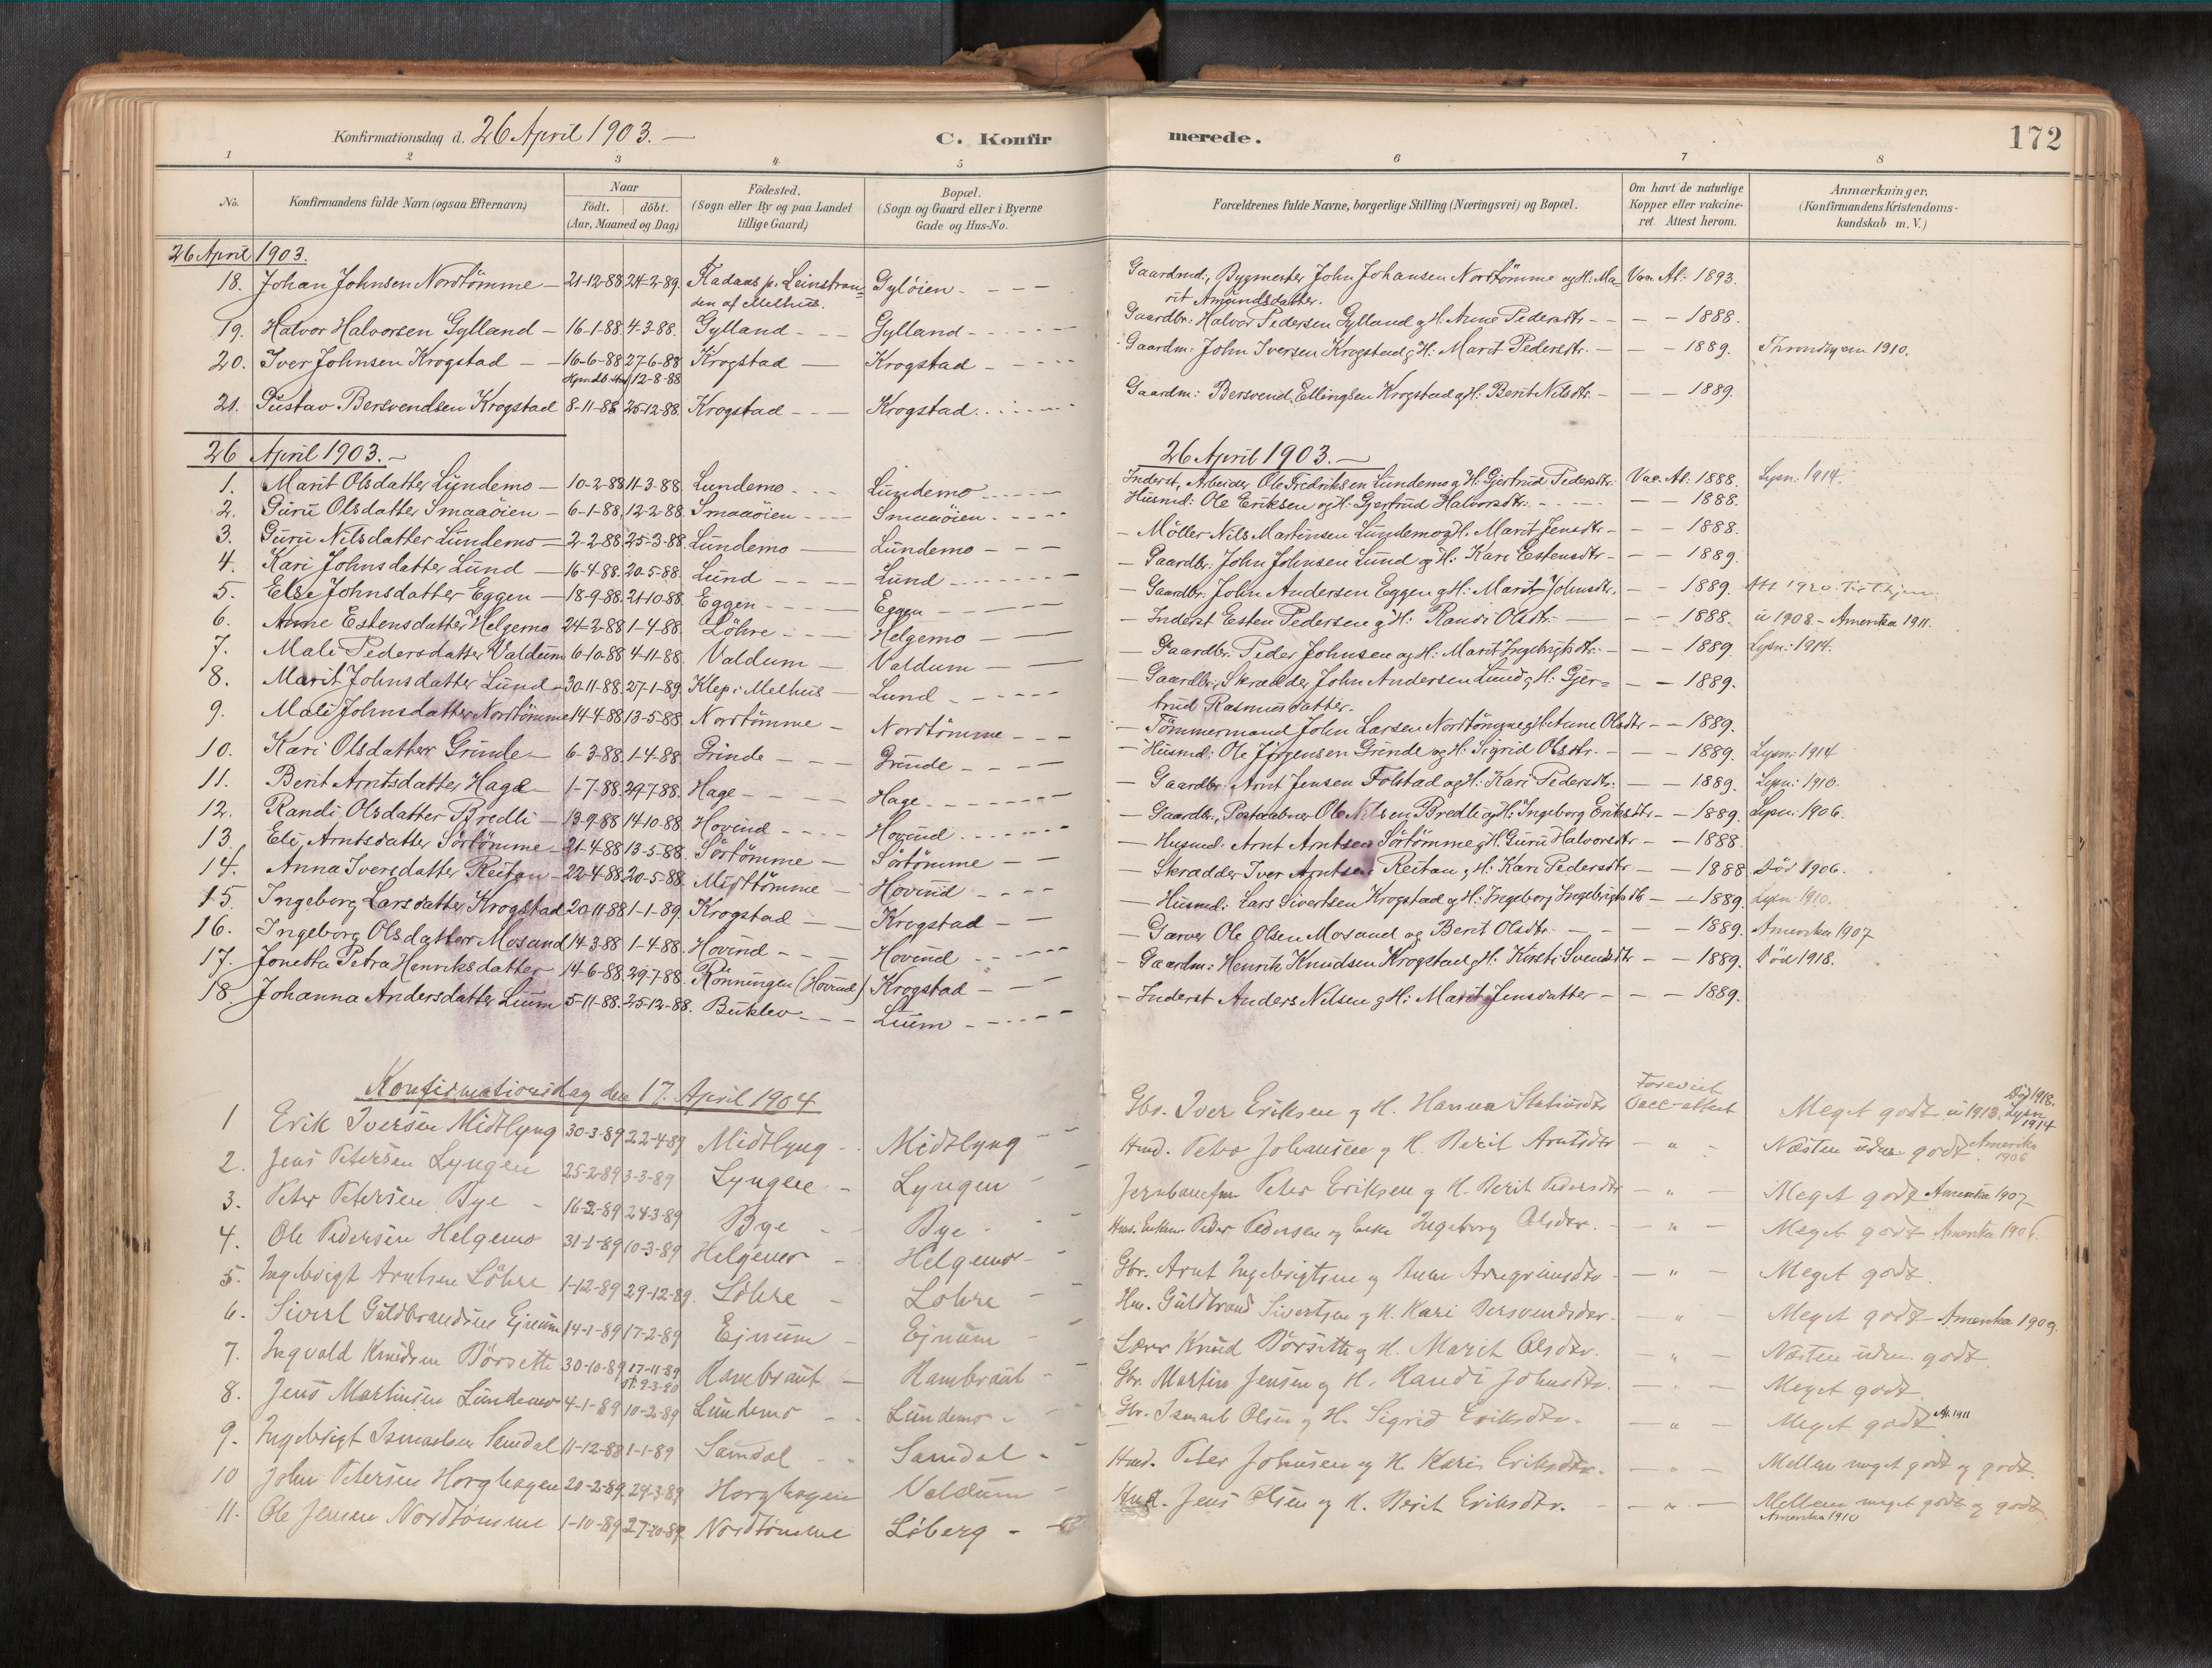 Konfirmationsdag d. 26 April 1903. —
C. Konfir merede. 172
1 2 3 4 5 6 7 8
No. Konfirmandens fulde Navn (ogsaa Efternavn) Naar födt. döbt. (Aar, Maaned og Dag) Födested. (Sogn eller By og paa Landet tillige Gaard) Bopæl. (Sogn og Gaard eller i Byerne Gade og Hus-No. Forældrenes fulde Navne, borgerlige Stilling (Næringsvei) og Bopæl. Om havt de naturlige Kopper eller vakcineret. Attest herom. Anmærkninger. (Konfirmandens Kristendomskundskab m. V.)
26 April 1903.
18. Johan Johnsen Nordtömme — 21-12-88 24-2-89. Leinstran= Gylöien - - — Gaardmd:, Bygmester John Johansen Nordtömme og H: Ma= Vac. At: 1893.
den af Melhus. rit Amundsdatter.
19. Halvor Halvorsen Gylland — 16-1-88 4-3-88. Gylland - — Gylland - - - - Gaardbr: Halvor Pedersen Gylland og H: Anne Pedersdtr - — — 1888.
20. Iver Johnsen Krogstad — — 16-6-88 27-6-88 Krogstad — Krogstad - - - Gaardm: John Iversen Krogstad og H: Marit Pedersdtr. — — — 1889. Throndhjem 1910.
Hjemdöbt 12-8-88
21. Gustav Bersvendsen Krogstad 8-11-88 25-12-88. Krogstad - — Krogstad. Gaardm: Bersvend Ellingsen Krogstad og H: Berit Nilsdtr. - — — 1889.
26 April 1903. — 26 April 1903. —
1. Marit Olsdatter Lundemo — 10-2-88 11-3-88. Lundemo - - - Lundemo - - - Inderst, Arbeider Ole Fredriksen Lundemo og H: Gjertrud Pedersdtr: Vac. At: 1888. Lysn: 1914.
2. Guru Olsdatter Smaaöien — 6-1-88. 12-2-88. Smaaöien - - — Smaaöien - - - Husmd: Ole Eriksen og H: Gjertrud Halvorsdtr: - - — 1888.
3. Guru Nilsdatter Lundemo — 2-2-88. 25-3-88. Lundemo — Lundemo - - — - Möller Nils Martinsen Lundemo og H. Marit Jensdtr - — — 1888.
4. Kari Johnsdatter Lund — 16-4-88. 20-5-88. Lund - - — Lund - - - — Gaardbr: John Johnsen Lund og H: Kari Estensdtr - — — 1889.
5. Else Johnsdatter Eggen — 18-9-88. 21-10-88. Eggen - - - Eggen — — — Gaardbr: John Andersen Eggen og H: Marit Johnsdtr. - — - 1889. Att 1920
6. Anne Estensdatter Helgemo 24-2-88. 1-4-88. Löhre - - — Helgemo — — - Inderst Esten Pedersen og H: Randi Olsdtr: — — - 1888. u 1908 - Amerika 1911.
7. Mali Pedersdatter Valdum 6-10-88. 4-11-88. Valdum — Valdum — — — Gaardbr. Peder Johnsen og H: Marit Ingebrigtsdtr: - — - 1889. Lysn: 1914.
8. Marit Johnsdatter Lund - 30-11-88. 27-1-89. Klep i Melhus — Lund - - - — Gaardbr:, Skrædder John Andersen Lund og H: Gjer= — — 1889.
trud Rasmusdatter.
9. Mali Johnsdatter Nordtömme 14-4-88. 13-5-88. Nordtömme — Nordtömme - - - — Tömmermand John Larsen Nordtömme og H: Anne Olsdtr — — 1889.
10. Kari Olsdatter Grinde — 6-3-88. 1-4-88. Grinde — - - Grinde - - - — Husmd: Ole Jörgensen Grinde og H: Sigrid Olsdtr. - — — 1889. Lysn: 1914
11. Berit Arntsdatter Hage — 1-7-88. 29-7-88. Hage - - - - Hage - - - — Gaardbr: Arnt Jensen Folstad og H: Kari Pedersdtr: — — 1889. Lysn: 1910.
12. Randi Olsdatter Bredli — 13-9-88 14-10-88 Hovind - - - Hovind - - - — Gaardbr., Postaabner Ole Nilsen Bredli og H: Ingeborg Eriksdtr — — 1889. Lysn: 1906.
13. Eli Arntsdatter Sörtömme — 21-4-88 13-5-88. Sörtömme — Sörtömme — — — Husmd: Arnt Arntsen Sörtömme og H: Guru Halvorsdtr — — 1888.
14. Anna Iversdatter Reitan — 22-4-88. 20-5-88. Midttömme — Hovind - - - — Skrædder Iver Arntsen Reitan og H: Kari Pedersdtr — — 1888. Död 1906.
15. Ingeborg Larsdatter Krogstad 20-11-88 1-1-89. Krogstad — Krogstad — — Husmd: Lars Sivertsen Krogstad og H: Ingeborg Ingebrigtsdtr — — 1889. Lysn: 1910.
16. Ingeborg Olsdatter Mosand 14-3-88 1-4-88. Hovind - - - Hovind - - - — Garver Ole Olsen Mosand og Berit Olsdtr - — - — 1889. Amerika 1907
17. Jonetta Petra Henriksdatter 14-6-88. 29-7-88. Rönningen (Hovind) Krogstad — - Gaardm: Henrik Knudsen Krogstad og H. Kirsti Svendsdtr — — 1889. Död 1918.
18. Johanna Andersdatter Lium 5-11-88. 25-12-88. Buklev - - - Lium - - - — Inderst Anders Nilsen og H: Marit Jensdatter — - — 1889.
Konfirmationsdag den 17. April 1904
1 Erik Iversen Midtlyng 30-3-89 22-4-89 Midtlyng - - Midtlyng Gbr. Iver Eriksen og H. Hanna Forevist Vacc-attest Meget godt. u 1913. Lysn 1914 Död 1918.
2. Jens Petersen Lyngen 25-2-89 3-3-89 Lyngen - Lyngen Hmd. Peter Johansen og H. Berit Arntsdtr — " - Næsten uden godt Amerika 1906
3. Peter Petersen Bye - 16-2-89 24-3-89 Bye - Bye - Jernbanefm Peter Eriksen og H. Berit Pedersdtr — " — Meget godt Amerika 1907
4. Ole Pedersen Helgemo 31-1-89 10-3-89 Helgemo - Helgemo - Peder Pedersen og Enke Ingeborg Olsdtr. — " — Meget godt Amerika 1906
5. Ingebrigt Arntsen Löhre 1-12-89 29-12-89. Löhre - Lohre Gbr. Arnt Ingebrigtsen og Anne Arngrimsdtr — " — Meget godt.
6. Sivert Guldbrandsen Ejnum 14-1-89 17-2-89 Ejnum - Ejnum Hm. Guldbrand Sivertsen og H. Kari Bersvendsdtr. — " Meget godt Amerika 1909.
7. Ingvald Knudsen Börsetti 30-10-89 17-11-89 Rambraut - Rambraut - Lærer Knud Börsetti og H. Marit Olsdtr. — " — Næsten uden godt
St. 9-3-90
8. Jens Martinsen Lundemo 4-1-89 10-2-89 Lundemo - Lundemo - Gbr. Martin Jensen og H. Randi Johnsdtr. — " — Meget godt.
9. Ingebrigt Ismaelsen Samdal 11-12-88 1-1-89 Samdal - - Samdal - Gbr. Ismael Olsen og H. Sigrid Eriksdtr. — " Meget godt 1911
10 John Petersen Horghagen 20-2-89. 24-3-89 Horghagen Valdum - Hmd. Peter Johnsen og H. Karis Eriksdtr. — " — Mellem meget godt og godt.
11. Ole Jensen Nordtömme 1-10-89 27-10-89. Nordtömme Löberg - Hmd. Jens Olsen og H. Berit Eriksdtr. - — " — Mellem meget godt og godt
Amerika 1910